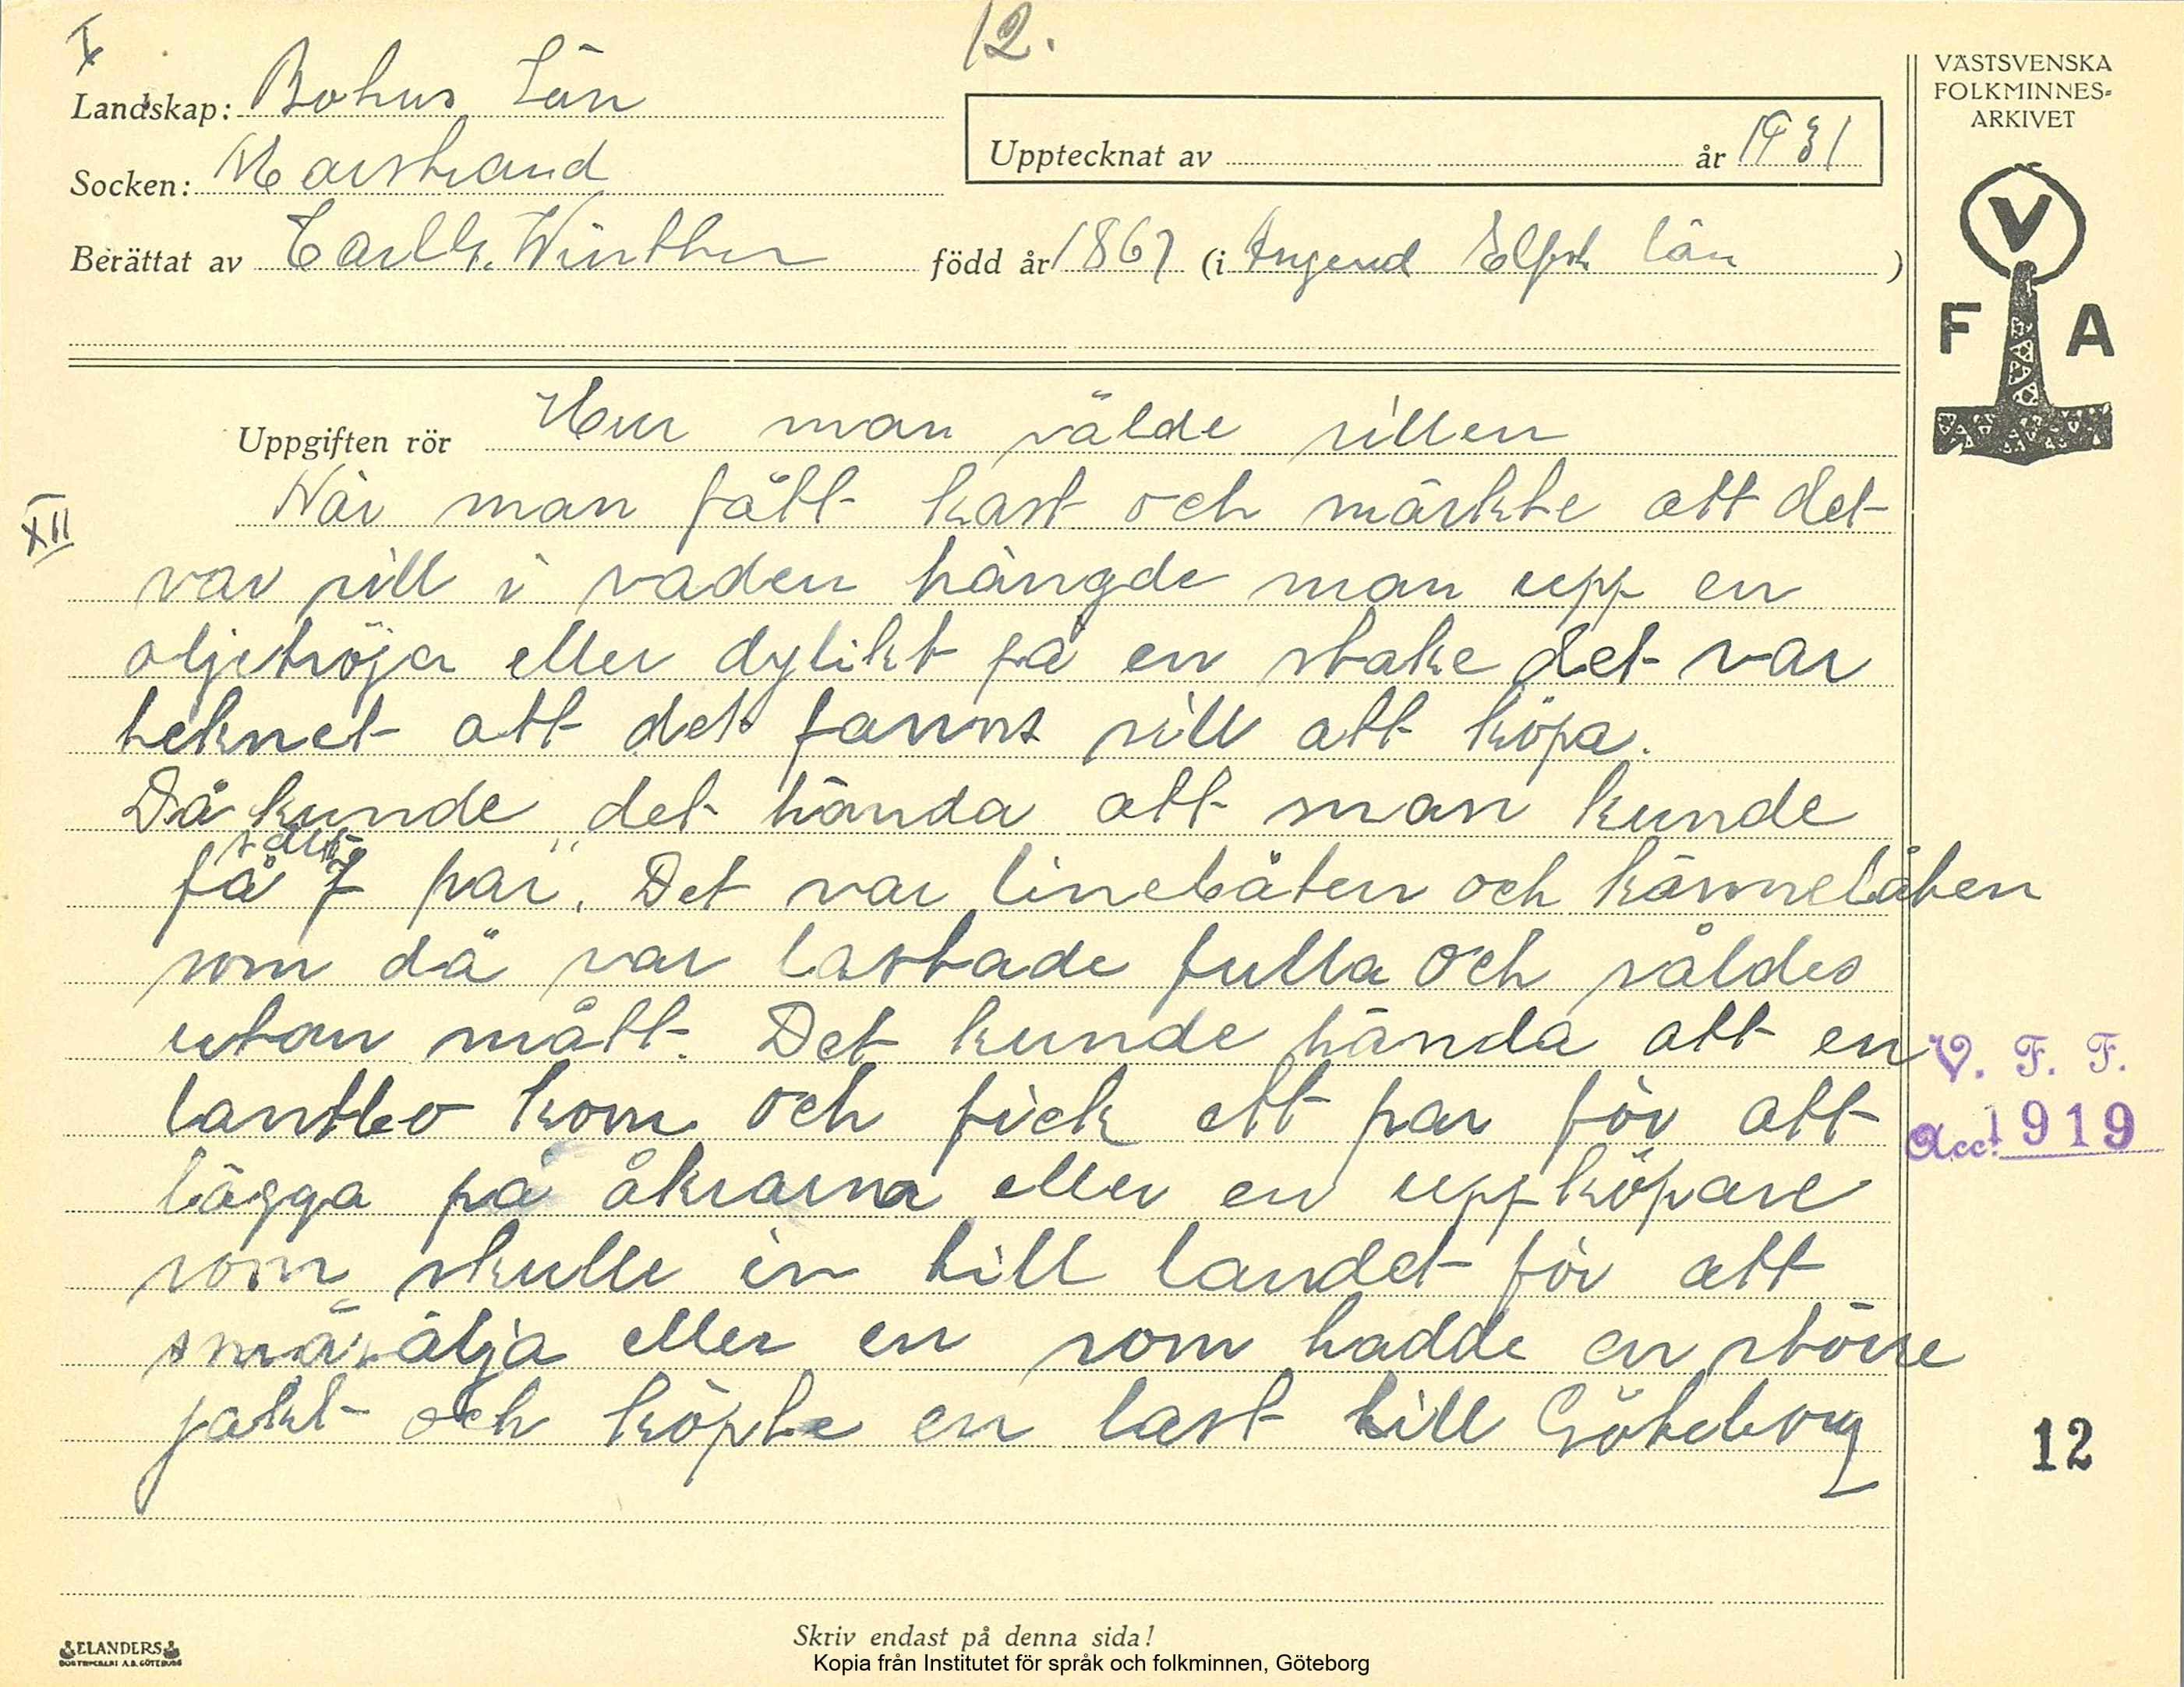 X
12.
Landskap: Bohus Län
Socken: Marstrand
Upptecknat av år 1931
Berättat av Carl G. Winther född år 1867 (i Elfsb län)
VÄSTSVENSKA
FOLKMINNES-
ARKIVET
V
F A
Uppgiften rör Hur man sålde sillen
XII
När man fått kast och märkte att det
var sill i vaden hängde man upp en
oljetröja eller dylikt på en stake det var
teknet att det fanns sill att köpa.
Då kunde det hända att man kunde
få 7 par". Det var linebåten och kännebåten
som då var lastade fulla och såldes
utan mått. Det kunde hända att en
lantbo kom och fick ett par för att
lägga på åkrarna eller en uppköpare
som skulle in till landet för att
småsälja eller en som hadde en större
jakt och köpte en last till Göteborg
V. F. F.
Acc. 1919
12
ELANDERS
BOKTRYCKERI A.B. GÖTEBORG
Skriv endast på denna sida!
Kopia från Institutet för språk och folkminnen, Göteborg